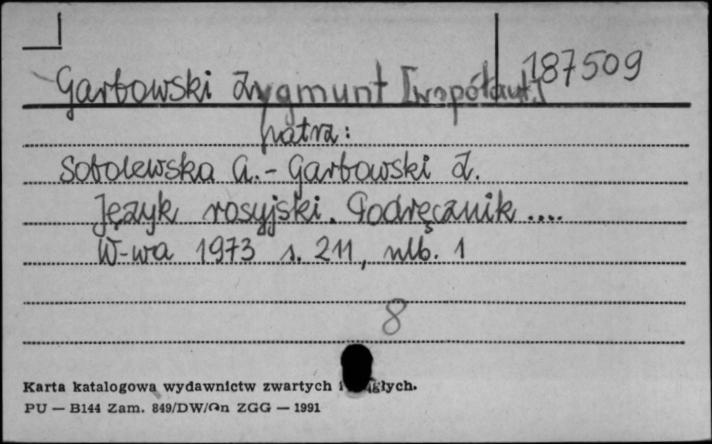 187509
Garbowski Zygmunt [współaut.]
patrz:
Sobolewska A. - Garbowski Z.
Język rosyjski. Podręcznik ....
W-wa 1973 s. 211, nlb. 1
8
Karta katalogowa wydawnictw zwartych i
PU — B144 Zam. 849/DW/ ZGG — 1991